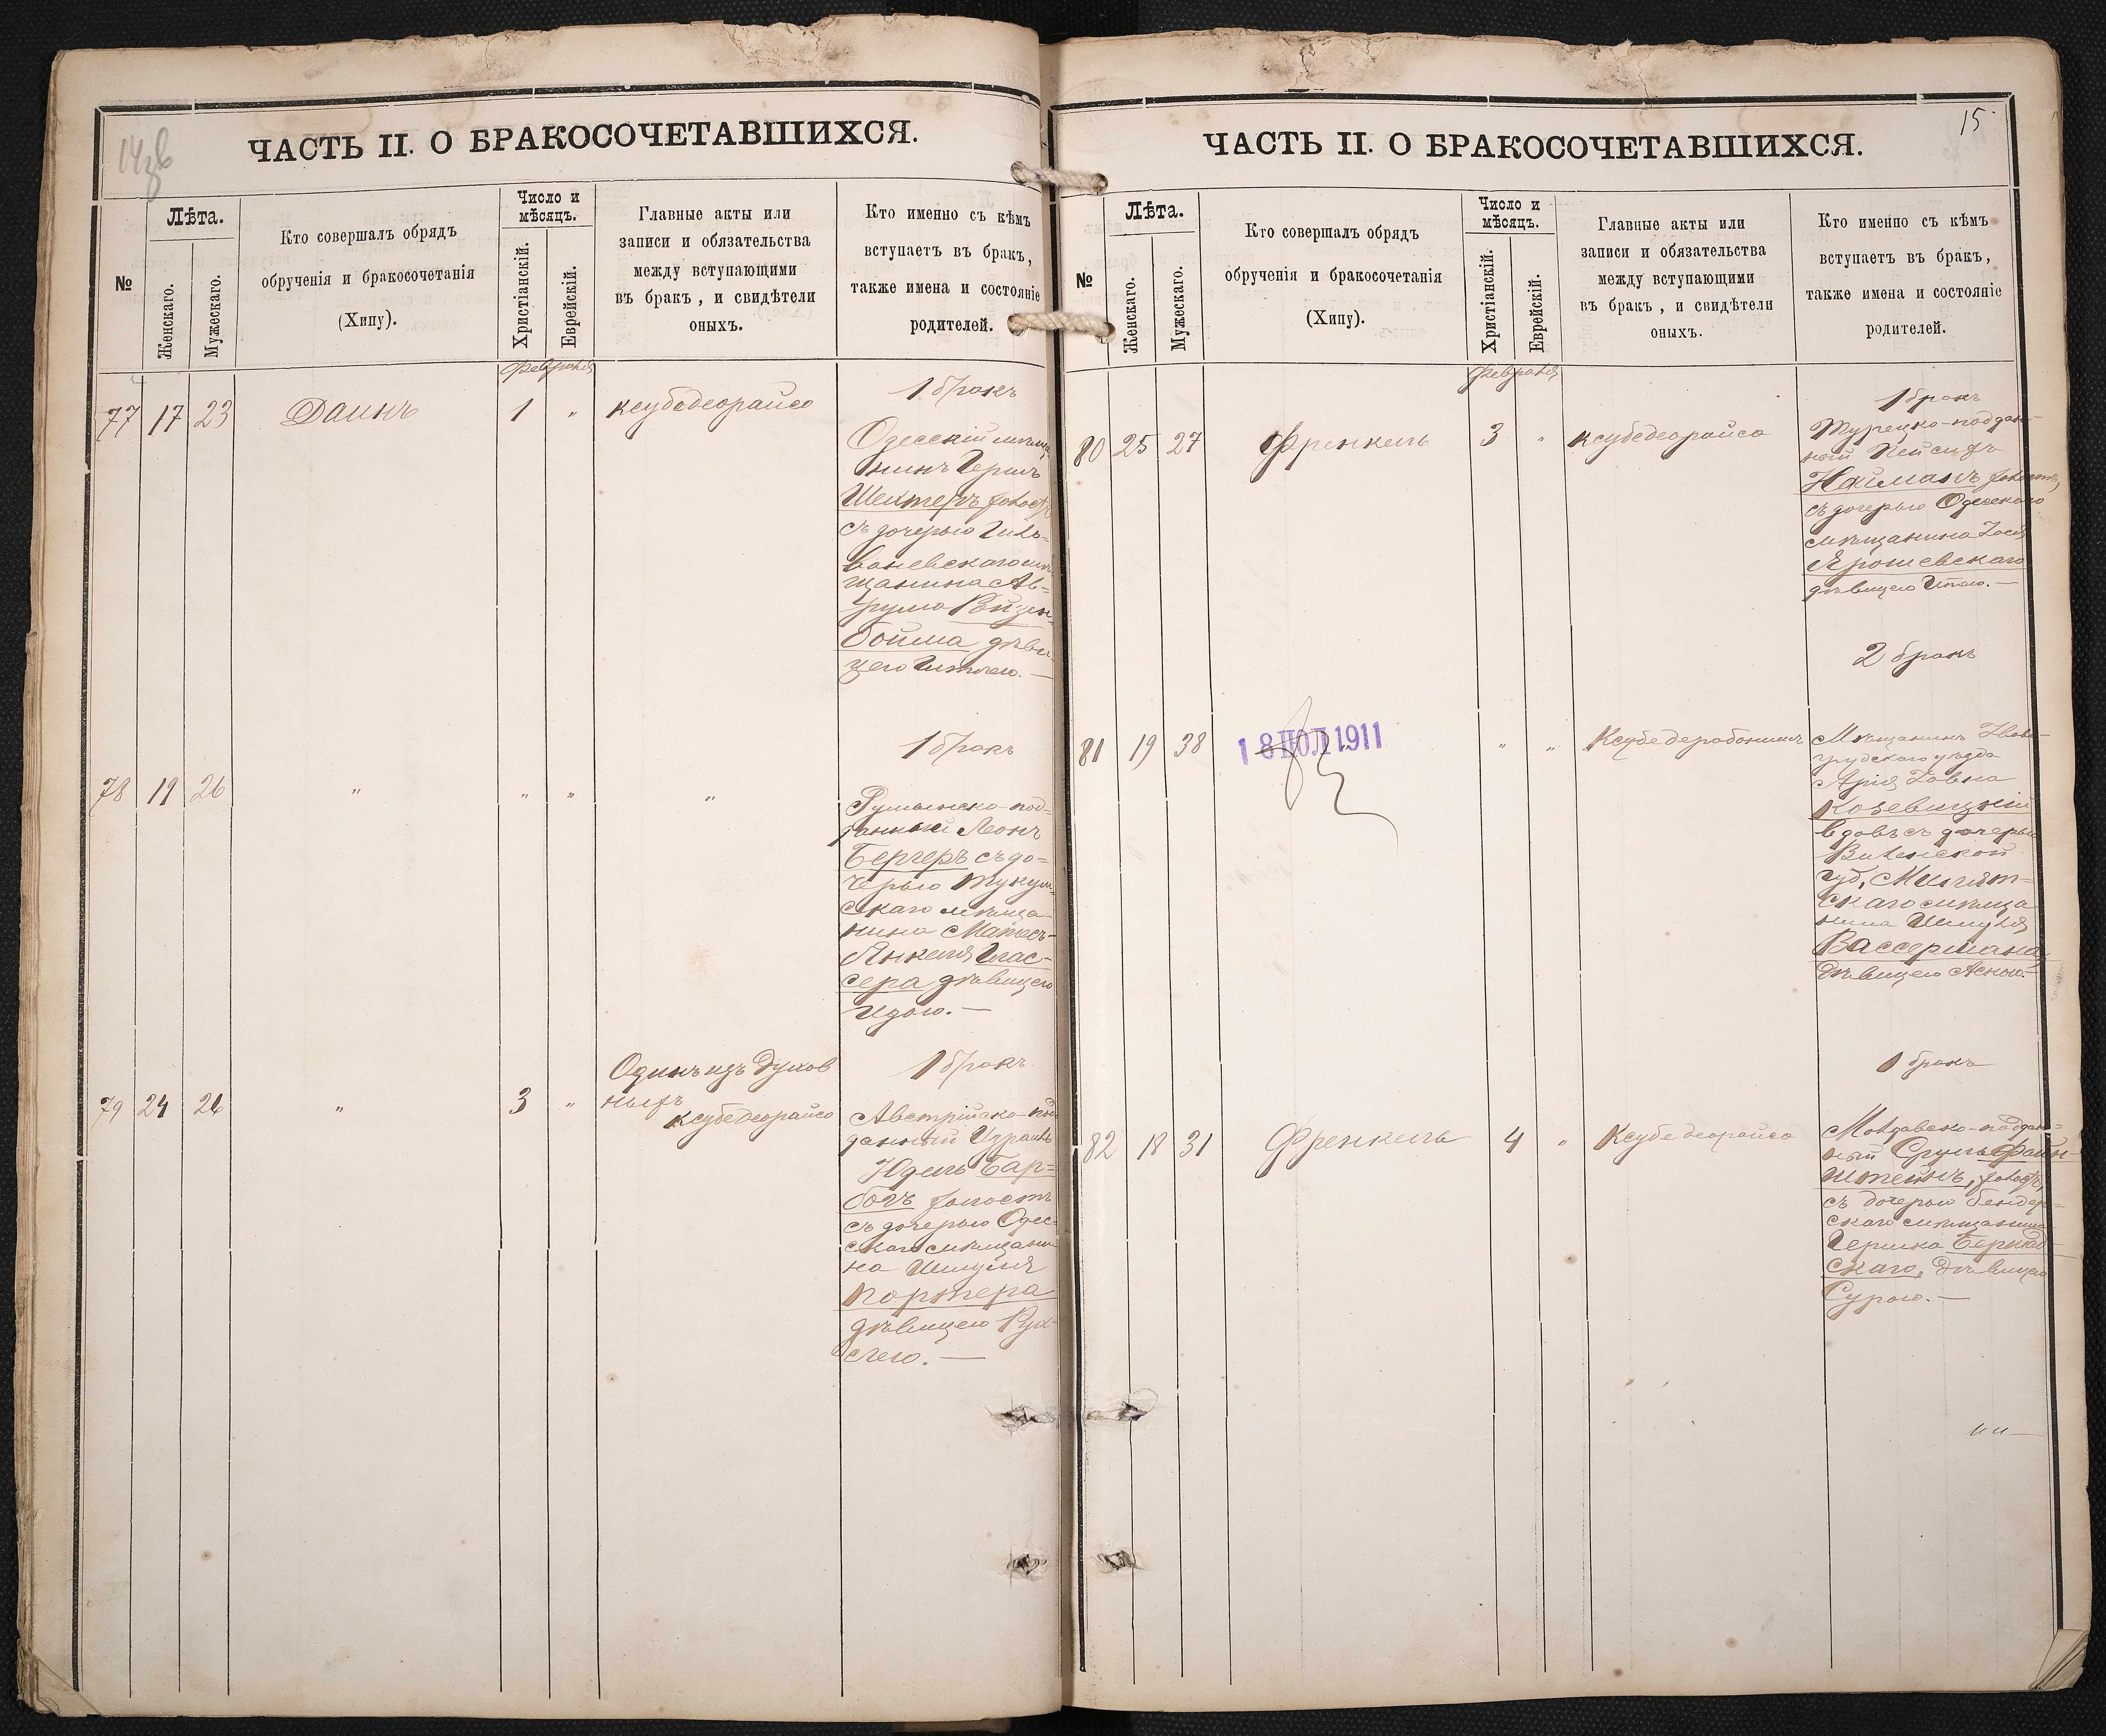 14зв
ЧАСТЬ II. О БРАКОСОЧЕТАВШИХСЯ.
№
Лѣта.
Женскаго.
Мужескаго.
Кто совершалъ обрядъ
обрученія и бракосочетанія
(Хипу).
Число и
мѣсяцъ.
Христіанскій.
Еврейскій.
Главные акты или
записи и обязательства
между вступающими
въ бракъ, и свидѣтели
оныхъ.
Кто именно съ кѣмъ
вступаетъ въ бракъ,
также имена и состояніе
родителей.
Февраля
77 17 23 Даинъ 1 " ксубедеорайсо
1 бракъ
Одесскій мѣща
нинъ Герш
Шехтеръ холост
съ дочерью
ваневскаго мѣ
щанина Ав-
рума Вайзен
бойма дѣви
цею
1 бракъ
78 19 26 " " " "
Румынско-под-
данный Леонъ
Бергеръ съ до-
черью Тукум
скаго мѣща-
нина
Янкеля Глас-
сера дѣвицею
Идою. —
Одинъ изъ духов
ныхъ
1 бракъ
79 24 26 " 3 " ксубедеорайсо
Австрійско-под
данный Израиль
Юдель Бар-
богъ холостъ
съ дочерью Одес-
скаго мѣщани-
на Шмуля
Портера
дѣвицею Рух-
лею. —
15
ЧАСТЬ II. О БРАКОСОЧЕТАВШИХСЯ.
№
Лѣта.
Женскаго.
Мужескаго.
Кто совершалъ обрядъ
обрученія и бракосочетанія
(Хипу).
Число и
мѣсяцъ.
Христіанскій.
Еврейскій.
Главные акты или
записи и обязательства
между вступающими
въ бракъ, и свидѣтели
оныхъ.
Кто именно съ кѣмъ
вступаетъ въ бракъ,
также имена и состояніе
родителей.
Февраля
80 25 27 Френкель 3 " ксубедеорайсо
1 бракъ
Турецко-поддан-
ный
Найманъ холостъ,
съ дочерью Одесскаго
мѣщанина
Ярошевскаго
дѣвицею
2 бракъ
81 19 38 18 ІЮЛ 1911 " " Ксубедерабонимъ
Мѣщанинъ Ново-
грудскаго уѣзда
Арія
Козевицкій
вдовъ съ дочерью
Виленской
губ.
скаго мѣща
нина Шмуля
Вассермана,
дѣвицею
1 бракъ
82 18 31 Френкель 4 " Ксубедеорайсо
Молдавско-поддан-
ный Сруль Файн-
штейнъ, холостъ,
съ дочерью Бендер-
скаго мѣщанина
Гершка
скаго, дѣвицею
Сурою. —